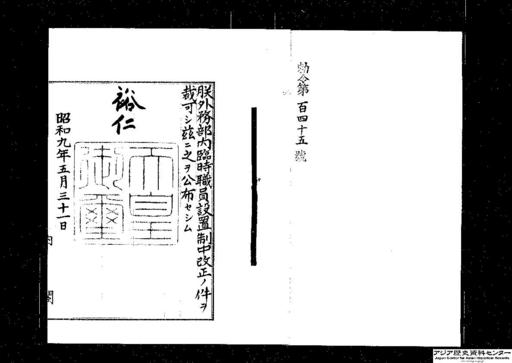 勅令第百四十五號
朕外務部內臨時職員設置制中改正ノ件ヲ
裁可シ玆ニ之ヲ公布セシム
裕仁
天皇御璽
昭和九年五月三十一日
內閣
アジア歴史資料センター
Japan Center for Asian Historical Records